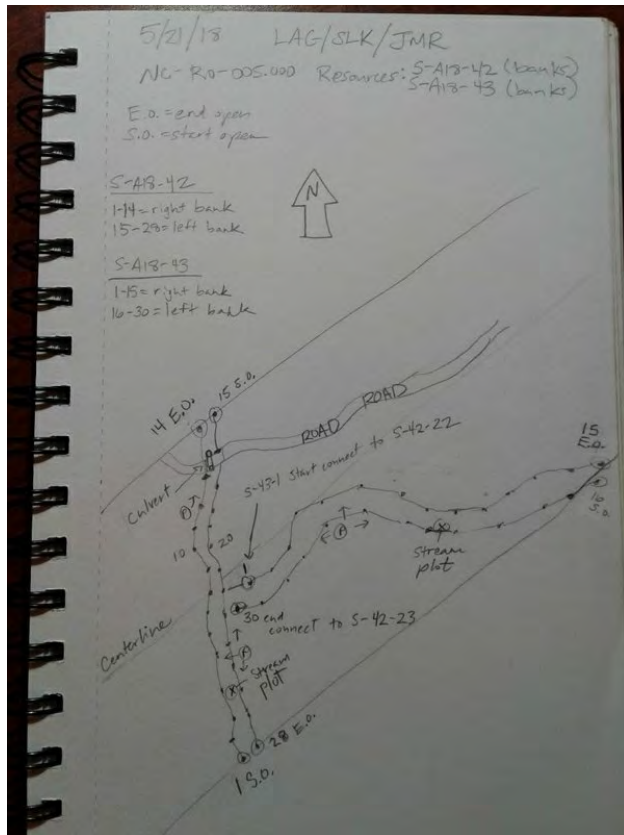 5/21/18 LAG/SLK/JMR
NC-RO-005.000 Resources: S-A18-42 (banks)
S-A18-43 (banks)
E.O. = end open
S.O. = start open
N
S-A18-42
1-14 = right bank
15-28 = left bank
S-A18-43
1-15 = right bank
16-30 = left bank
14 E.O.
15 S.O.
ROAD ROAD
Culvert
S-43-1 Start connect to S-42-22
15
E.O.
16
S.O.
10
20
1
stream
plot
30 end
connect to S-42-23
Centerline
stream
plot
28 E.O.
1 S.O.